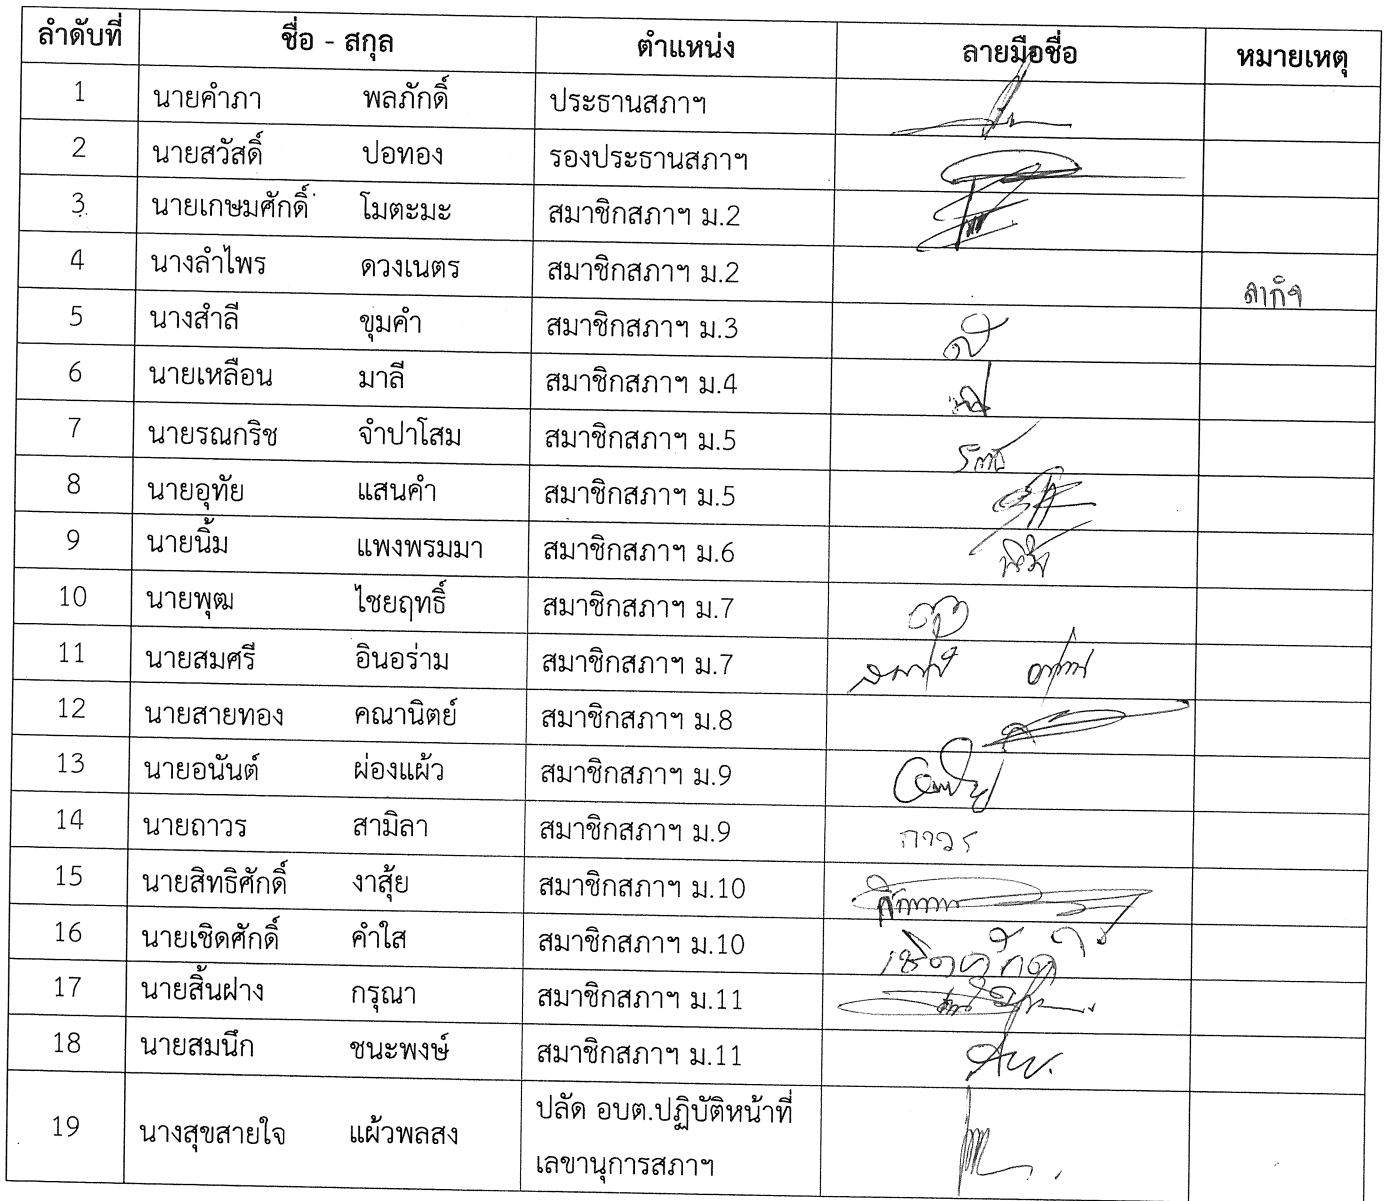 ลำดับที่ ชื่อ - สกุล ตำแหน่ง ลายมือชื่อ หมายเหตุ
1 นายคำภา พลภักดิ์ ประธานสภาฯ
2 นายสวัสดิ์ ปอทอง รองประธานสภาฯ
3 นายเกษมศักดิ์ โมตะมะ สมาชิกสภาฯ ม.2
4 นางลำไพร ดวงเนตร สมาชิกสภาฯ ม.2 ลากิจ
5 นางสำลี ขุมคำ สมาชิกสภาฯ ม.3
6 นายเหลือน มาลี สมาชิกสภาฯ ม.4
7 นายรณกริช จำปาโสม สมาชิกสภาฯ ม.5
8 นายอุทัย แสนคำ สมาชิกสภาฯ ม.5
9 นายนิ้ม แพงพรมมา สมาชิกสภาฯ ม.6
10 นายพุฒ ไชยฤทธิ์ สมาชิกสภาฯ ม.7
11 นายสมศรี อินอร่าม สมาชิกสภาฯ ม.7
12 นายสายทอง คณานิตย์ สมาชิกสภาฯ ม.8
13 นายอนันต์ ผ่องแผ้ว สมาชิกสภาฯ ม.9
14 นายถาวร สามิลา สมาชิกสภาฯ ม.9 ถาวร
15 นายสิทธิศักดิ์ งาสุ้ย สมาชิกสภาฯ ม.10
16 นายเชิดศักดิ์ คำใส สมาชิกสภาฯ ม.10 เชิดศักดิ์
17 นายสิ้นฝาง กรุณา สมาชิกสภาฯ ม.11
18 นายสมนึก ชนะพงษ์ สมาชิกสภาฯ ม.11
19 นางสุขสายใจ แผ้วพลสง ปลัด อบต.ปฏิบัติหน้าที่
เลขานุการสภาฯ